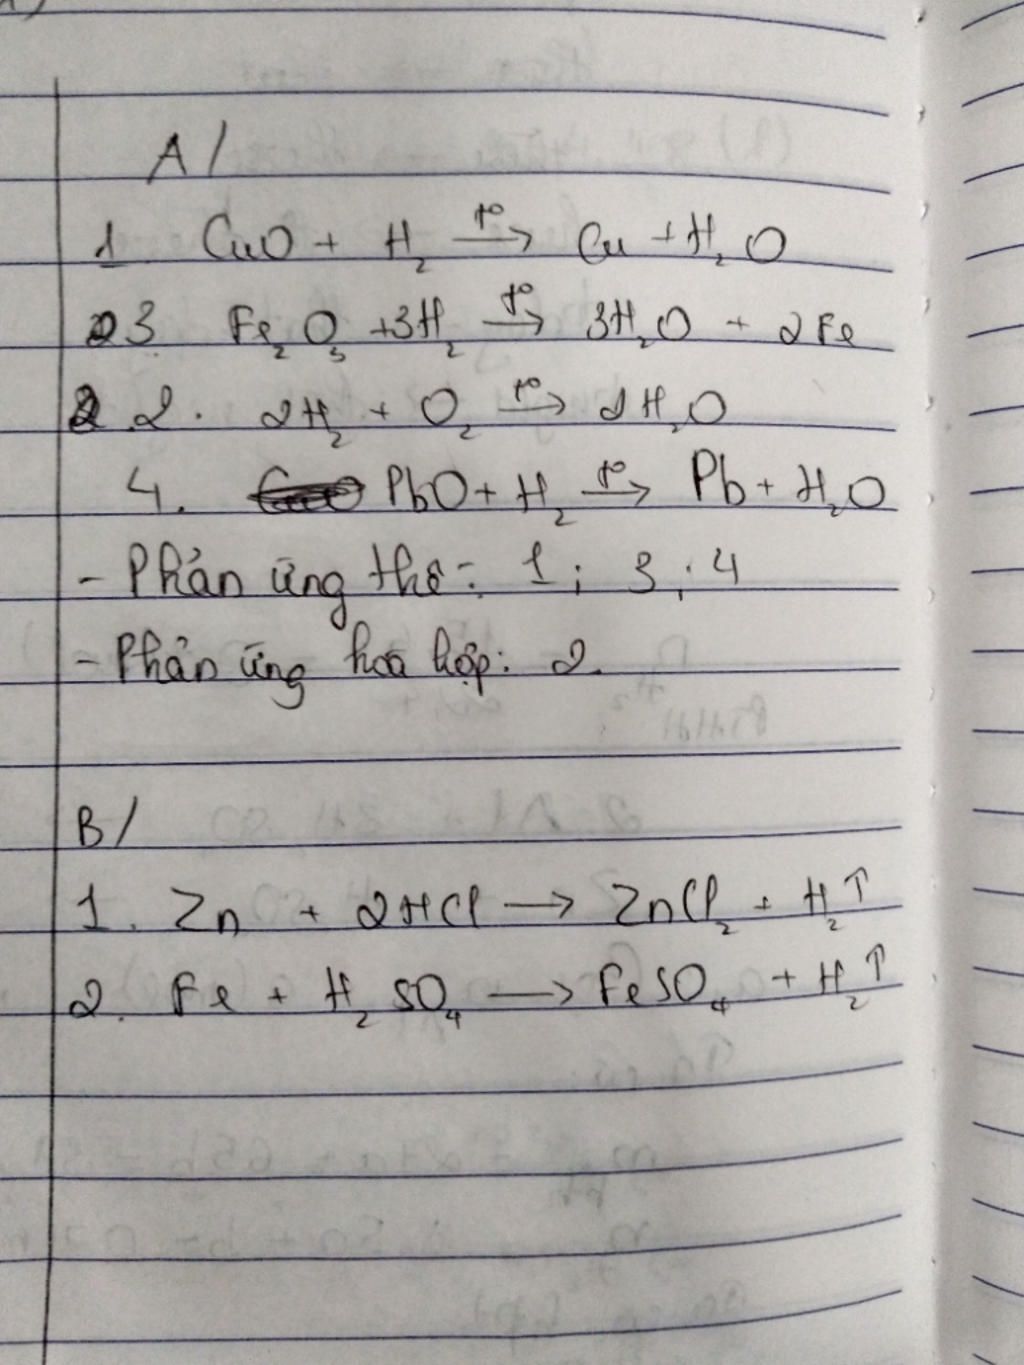 A/
1 CuO + H₂ –t°→ Cu + H₂O
3 Fe₂O₃ + 3H₂ –t°→ 3H₂O + 2Fe
2. 2H₂ + O₂ –t°→ 2H₂O
4. PbO + H₂ –t°→ Pb + H₂O
- Phản ứng thế: 1; 3; 4
- Phản ứng hoá hợp: 2.
B/
1. Zn + 2HCl → ZnCl₂ + H₂↑
2. Fe + H₂SO₄ → FeSO₄ + H₂↑